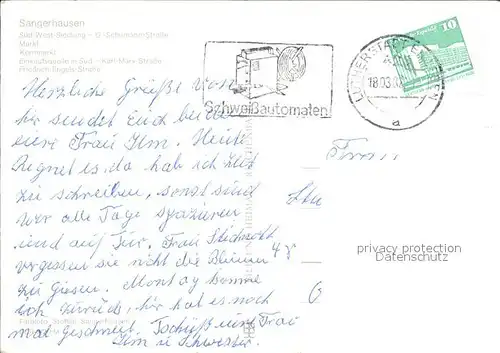 Sangerhausen
Süd-West-Siedlung - O.-Schürmann-Straße
Markt
Kornmarkt
Einkaufsquelle in Süd - Karl-Marx-Straße
Friedrich-Engels-Straße
10
LUTHERSTADT EISLEBEN
18.03.
a
Schweißautomaten
Herzliche Grüße von
hir sendet Euch beide
eure Frau
Heute
Regnet es da hab ich Zeit
zu schreiben, sonst sind
wir alle Tage spazieren
und auf Tur. Frau
vergessen sie nicht die Blumen
zu Giesen. Montag komme
ich zurück, hir hat es noch
mal geschneit. Tschüß eure Frau
u Schwester.
Firm
privacy protection
Datenschutz